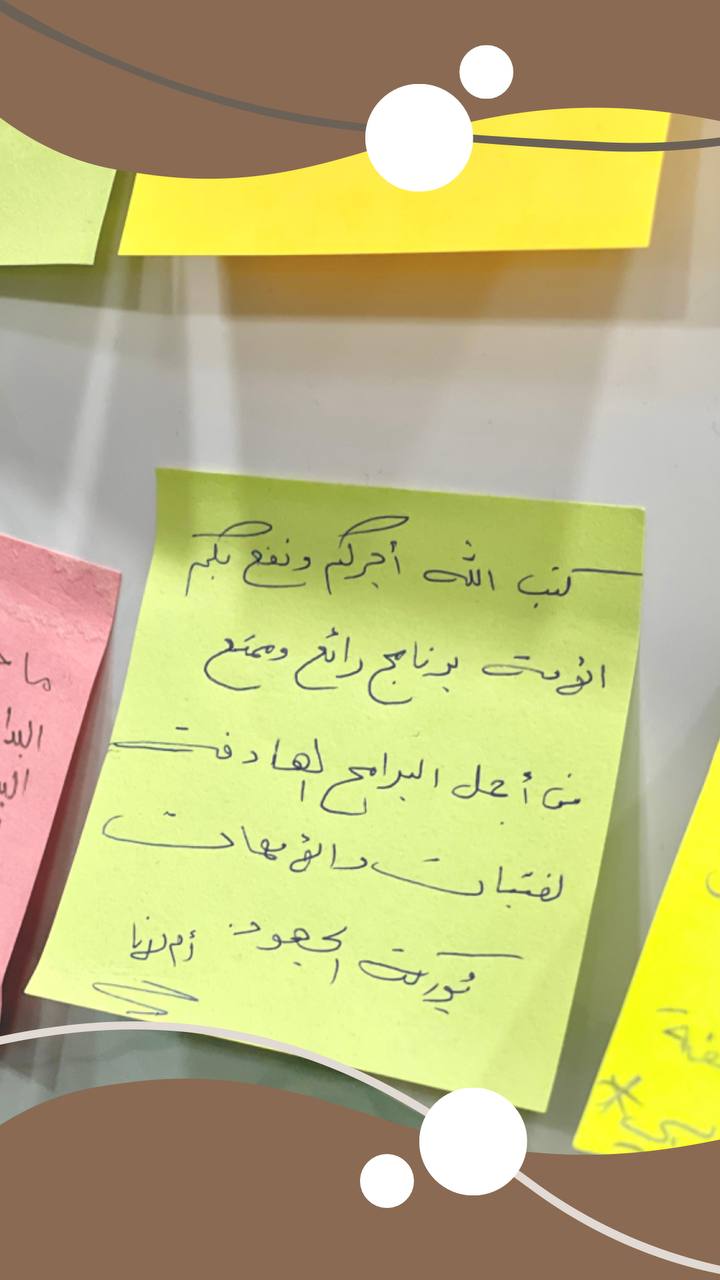 كتب الله أجركم ونفع بكم
الأمة برنامج رائع وممتع
من أجمل البرامج الهادفة
لفتيات والأمهات
بوركت الجهود أم لانا
ما
البدا